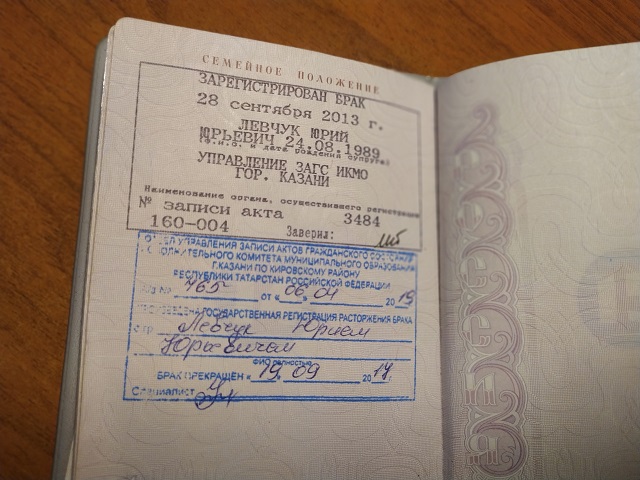 СЕМЕЙНОЕ ПОЛОЖЕНИЕ
ЗАРЕГИСТРИРОВАН БРАК
28 сентября 2013 г.
ЛЕВЧУК ЮРИЙ
ЮРЬЕВИЧ 24.08.1989
(ф.и.о. и дата рождения супруга)
УПРАВЛЕНИЕ ЗАГС ИКМО
ГОР. КАЗАНИ
Наименование органа, осуществившего регистрацию
№ записи акта 3484
160-004 Заверил:
ОТДЕЛ УПРАВЛЕНИЯ ЗАПИСИ АКТОВ ГРАЖДАНСКОГО СОСТОЯНИЯ
ИСПОЛНИТЕЛЬНОГО КОМИТЕТА МУНИЦИПАЛЬНОГО ОБРАЗОВАНИЯ
Г.КАЗАНИ ПО КИРОВСКОМУ РАЙОНУ
РЕСПУБЛИКИ ТАТАРСТАН РОССИЙСКОЙ ФЕДЕРАЦИИ
№ 765 от «06» 04 2015
ГОСУДАРСТВЕННАЯ РЕГИСТРАЦИЯ РАСТОРЖЕНИЯ БРАКА
с гр. Левчук Юрием
Юрьевичем
ФИО полностью
БРАК ПРЕКРАЩЕН «19» 09 2014
Специалист